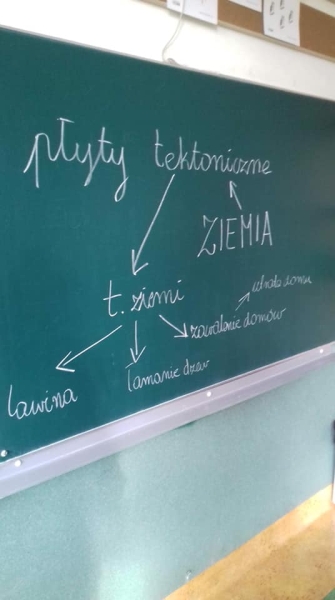 płyty tektoniczne
ZIEMIA
t. ziemi
utrata domu
zawalanie domów
łamanie drzew
lawina